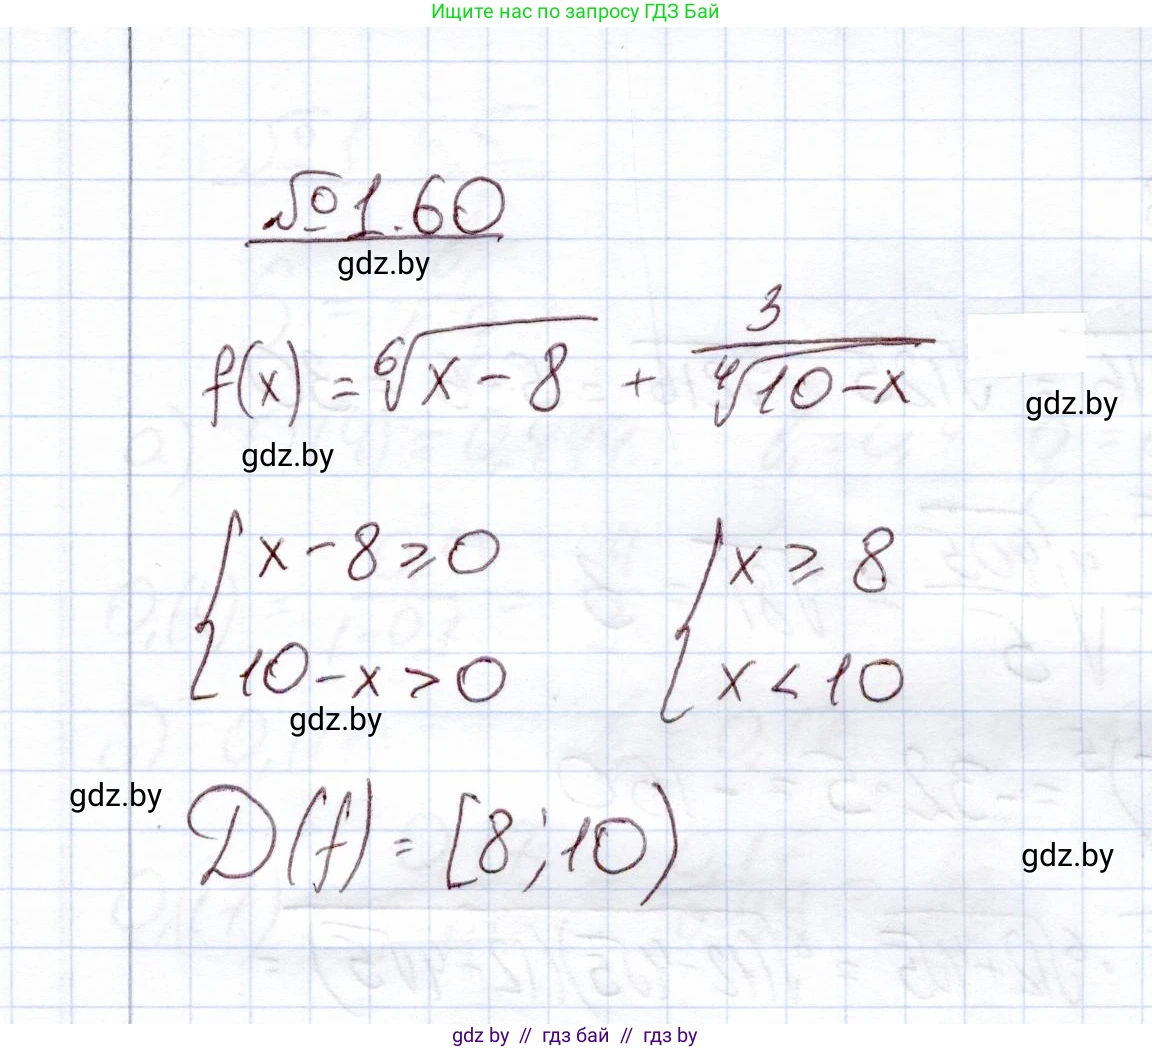 Ищите нас по запросу ГДЗ Бай
№1.60
gdz.by
f(x) = ⁶√(x − 8) + 3/⁴√(10−x)
gdz.by
gdz.by
{ x − 8 ≥ 0 { x ≥ 8
{ 10 − x > 0 { x < 10
gdz.by
gdz.by
D(f) = [8; 10)
gdz.by
gdz by // гдз бай // гдз by